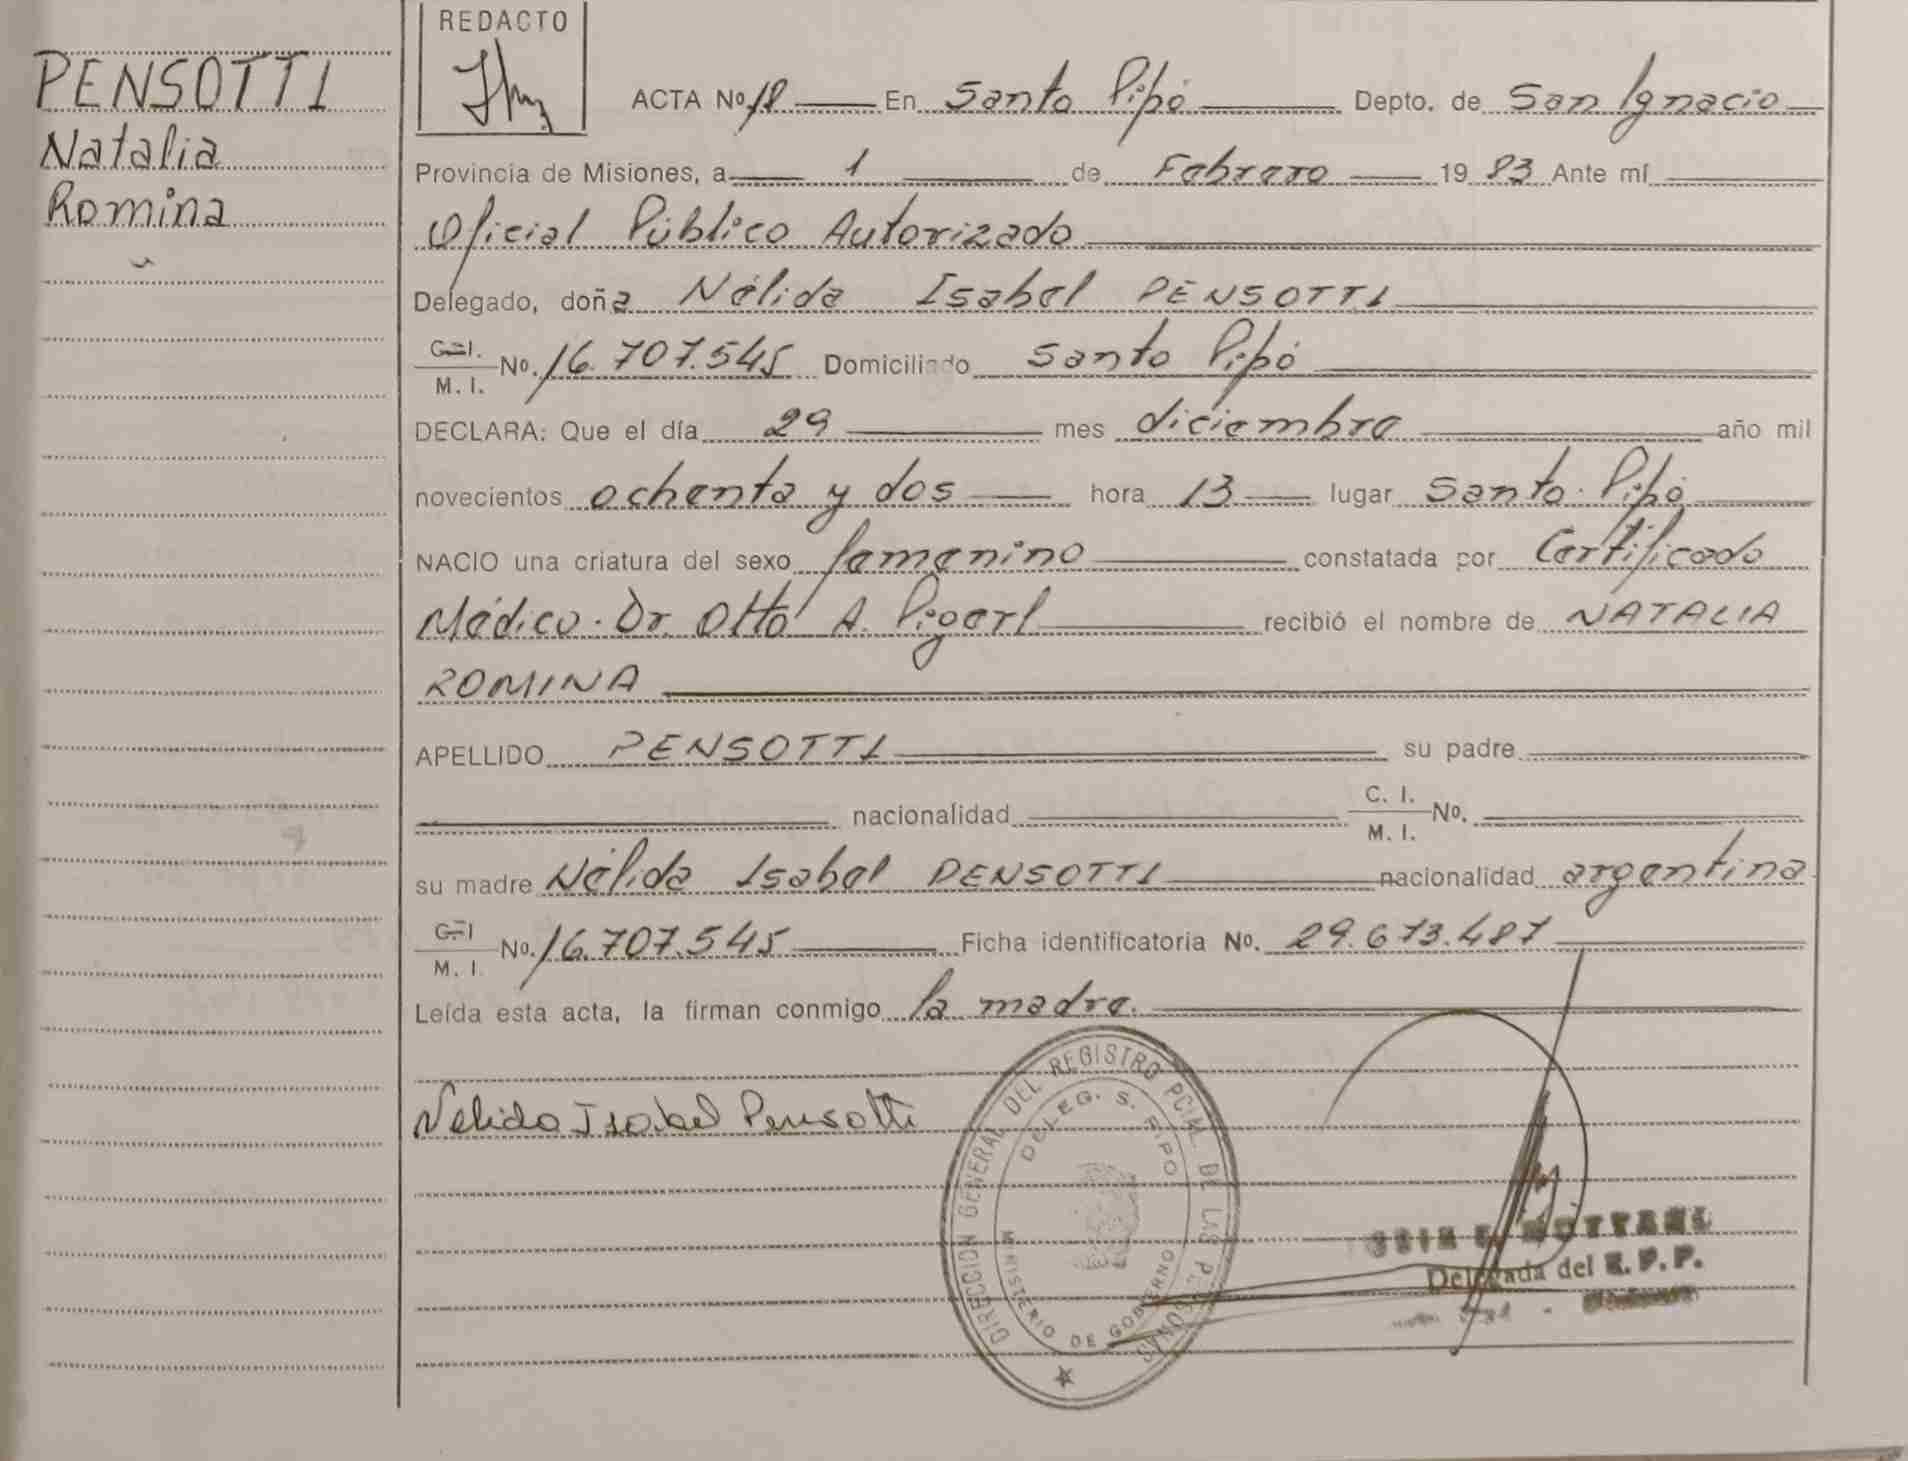 PENSOTTI
Natalia
Romina
REDACTO
ACTA No 18 En Santo Pipó Depto. de San Ignacio
Provincia de Misiones, a 1 de Febrero 1983 Ante mí
Oficial Público Autorizado
Delegado, doña Nélida Isabel PENSOTTI
C. I.
M. I.
No. 16.707.545 Domiciliado Santo Pipó
DECLARA: Que el día 29 mes diciembre año mil
novecientos ochenta y dos hora 13 lugar Santo Pipó
NACIO una criatura del sexo femenino constatada por Certificado
Médico. Dr. Otto A. recibió el nombre de NATALIA
ROMINA
APELLIDO PENSOTTI su padre
nacionalidad C. I. M. I. No.
su madre Nélida Isabel PENSOTTI nacionalidad argentina
C. I.
M. I.
No. 16.707.545 Ficha identificatoria No. 29.673.487
Leída esta acta, la firman conmigo la madre.
Nelida Isabel Pensotti
DIRECCION GENERAL DEL REGISTRO PCIAL DE LAS PERSONAS
DELEG. S. PIPO
MINISTERIO DE GOBIERNO
Delegada del R. P. P.